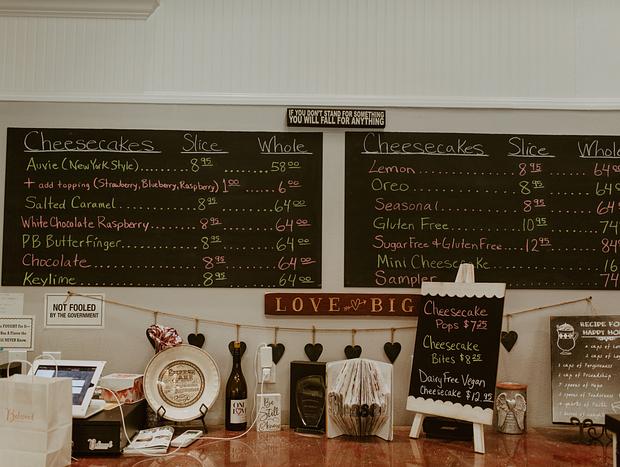 IF YOU DON'T STAND FOR SOMETHING
YOU WILL FALL FOR ANYTHING
Cheesecakes Slice Whole
Auvie (New York Style) 8.95 58.00
+ add topping (Strawberry, Blueberry, Raspberry) 1.00 6.00
Salted Caramel 8.95 64.00
White Chocolate Raspberry 8.95 64.00
PB Butterfinger 8.95 64.00
Chocolate 8.95 64.00
Keylime 8.95 64.00
Cheesecakes Slice Whole
Lemon 8.95 64
Oreo 8.95 64
Seasonal 8.95 64
Gluten Free 10.95 74
Sugar Free & Gluten Free 12.95 84
Mini Cheesecake 16
Sampler 74
NOT FOOLED
BY THE GOVERNMENT
LOVE BIG
Cheesecake
Pops $7.25
Cheesecake
Bites $8.25
Dairy Free Vegan
Cheesecake $12.95
Be
Still
RECIPE FO
HAPPY HO
Beloved